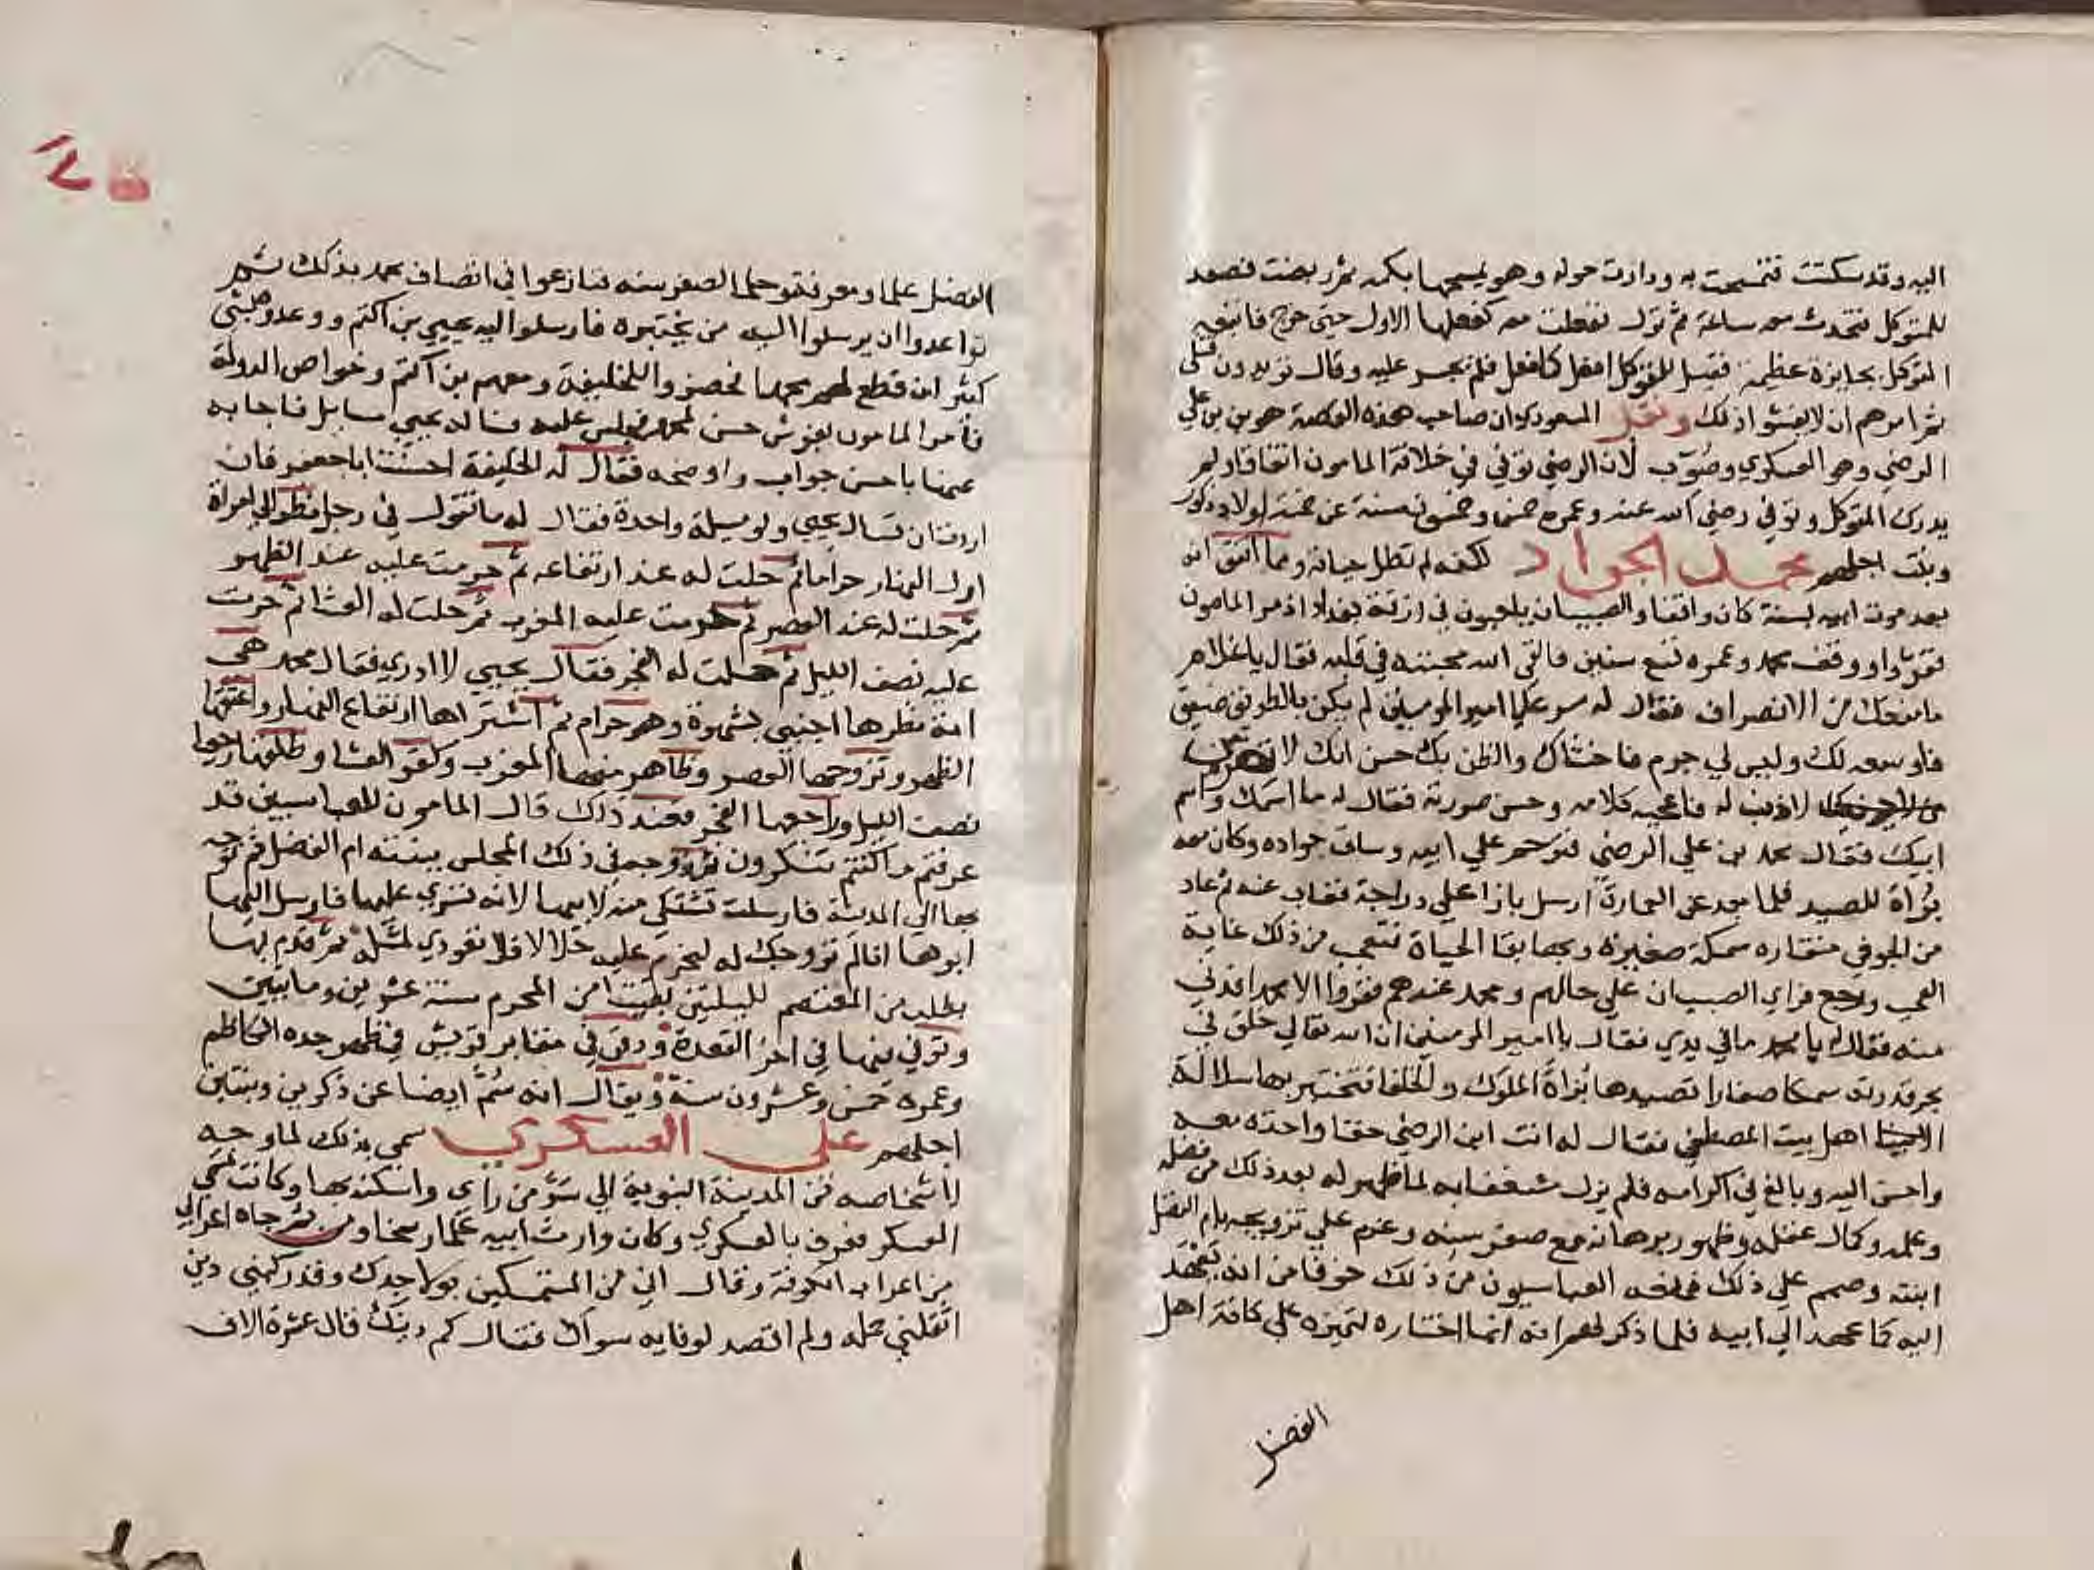 اليه وقد سكتت فتمسحت به ودارت حوله وهو يمسحها بكمه ثم ربضت فصعد
للمتوكل فتحدث معه ساعة ثم نزل ففعلت معه كفعلها الاول حتى خرج فاتبعه
المتوكل بجايزة عظيمة فقيل للمتوكل افعل كما فعل فلم يجسر عليه وقال تريدون قتلي
ثم امرهم ان لا يفشوا ذلك ونقل المسعودي ان صاحب هذه القصة هو بن بن علي
الرضي وهو العسكري وصُوّب لان الرضي توفي في خلافة المامون اتفاقا ولم
يدرك المتوكل وتوفي رضي الله عنه وعمره خمس وخمسون سنة عن خمسة اولاد ذكور
وبنت اجلهم محمد الجواد لكنه لم تطل حياته ومما اتفق انه
بعد موت ابيه بسنة كان واقفا والصبيان يلعبون في ازقة بغداد اذ مر المامون
ففروا ووقف محمد وعمره تسع سنين فالقي الله محبته في قلبه فقال يا غلام
ما منعك من الانصراف فقال له مسرعا يا امير المومنين لم يكن بالطريق ضيق
فاوسعه لك وليس لي جرم فاخشاك والظن بك حسن انك لا تضر
من لا ذنب له فاعجبه كلامه وحسن صورته فقال له ما اسمك واسم
ابيك فقال محمد بن علي الرضي فترحم علي ابيه وساق جواده وكان معه
بُزاة للصيد فلما بعد عن العمارة ارسل بازا علي دراجة فغاب عنه ثم عاد
من الجو في منقاره سمكة صغيرة وبها بقا الحياة فتعجب من ذلك غاية
العجب ورجع فراي الصبيان علي حالهم ومحمد عندهم ففروا الا محمد فدني
منه فقال له يا محمد ما في يدي فقال يا امير المومنين ان الله تعالي خلق في
بحر قدرته سمكا صغارا تصيدها بُزاة الملوك والخلفا فتختبر بها سلالة
اهل بيت المصطفي فقال له انت ابن الرضي حقا واخذه معه
واحسن اليه وبالغ في اكرامه فلم يزل شغفا به لما ظهر له بعد ذلك من فضله
وعلمه وكمال عقله وظهور برهانه مع صغر سنه وعزم علي تزويجه بام الفضل
ابنته وصمم علي ذلك فمنعه العباسيون من ذلك خوفا من انه يعهد
اليه كما عهد الي ابيه فلما ذكر لهم انه انما اختاره لتميزه علي كافة اهل
الفضل
الفضل علما ومعرفة وحلما لصغر سنه فتنازعوا في اتصاف محمد بذلك ثم
تواعدوا ان يرسلوا اليه من يختبره فارسلوا اليه يحيي بن اكثم ووعدوه بشي
كثير ان قطع لهم محمدا فحضروا للخليفة ومعهم بن اكثم وخواص الدولة
فامر المامون بفرش حسن لمحمد فجلس عليه فساله يحيي مسايل فاجابه
عنها باحسن جواب واوضحه فقال له الخليفة احسنت ابا جعفر فان
اردت ان تسال يحيي ولو مسيلة واحدة فقال له ما تقول في رجل نظر الي امراة
اول النهار حراما ثم حلت له عند ارتفاعه ثم حرمت عليه عند الظهر
ثم حلت له عند العصر ثم حرمت عليه المغرب ثم حلت له العشا ثم حرمت
عليه نصف الليل ثم حلت له الفجر فقال يحيي لا ادري فقال محمد هي
امة نظرها اجنبي بشهوة وهو حرام ثم اشتراها ارتفاع النهار واعتقها
الظهر وتزوجها العصر وظاهر منها المغرب وكفر العشا وطلقها رجعيا
نصف الليل وراجعها الفجر فعند ذلك قال المامون للعباسيين قد
عرفتم ما كنتم تنكرون ثم زوجه في ذلك المجلس ببنته ام الفضل ثم توجه
بها الي المدينة فارسلت تشتكي منه لابيها لانه تسري عليها فارسل اليها
ابوها انا لم نزوجك له لنحرم عليه حلالا فلا تعودي لمثله ثم قدم بها
بطلب من المعتصم لليلتين بقيتا من المحرم سنة عشرين ومايتين
وتوفي فيها في اخر القعدة ودفن في مقابر قريش في ظهر جده الكاظم
وعمره خمس وعشرون سنة ويقال انه سُمّ ايضا عن ذكرين وبنتين
اجلهم علي العسكري سمي بذلك لما وجه
لاشخاصه من المدينة النبوية الي سرّ من راي واسكنه بها وكانت تسمي
العسكر فعرف بالعسكري وكان وارث ابيه علما وسخا ومن ثم جاه اعرابي
من اعراب الكوفة وقال اني من المتمسكين بولا جدك وقد ركبني دين
اثقلني حمله ولم اقصد لوفايه سواك فقال كم دينك قال عشرة الاف